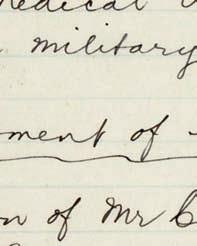 edical
military
ment of
on of Mr